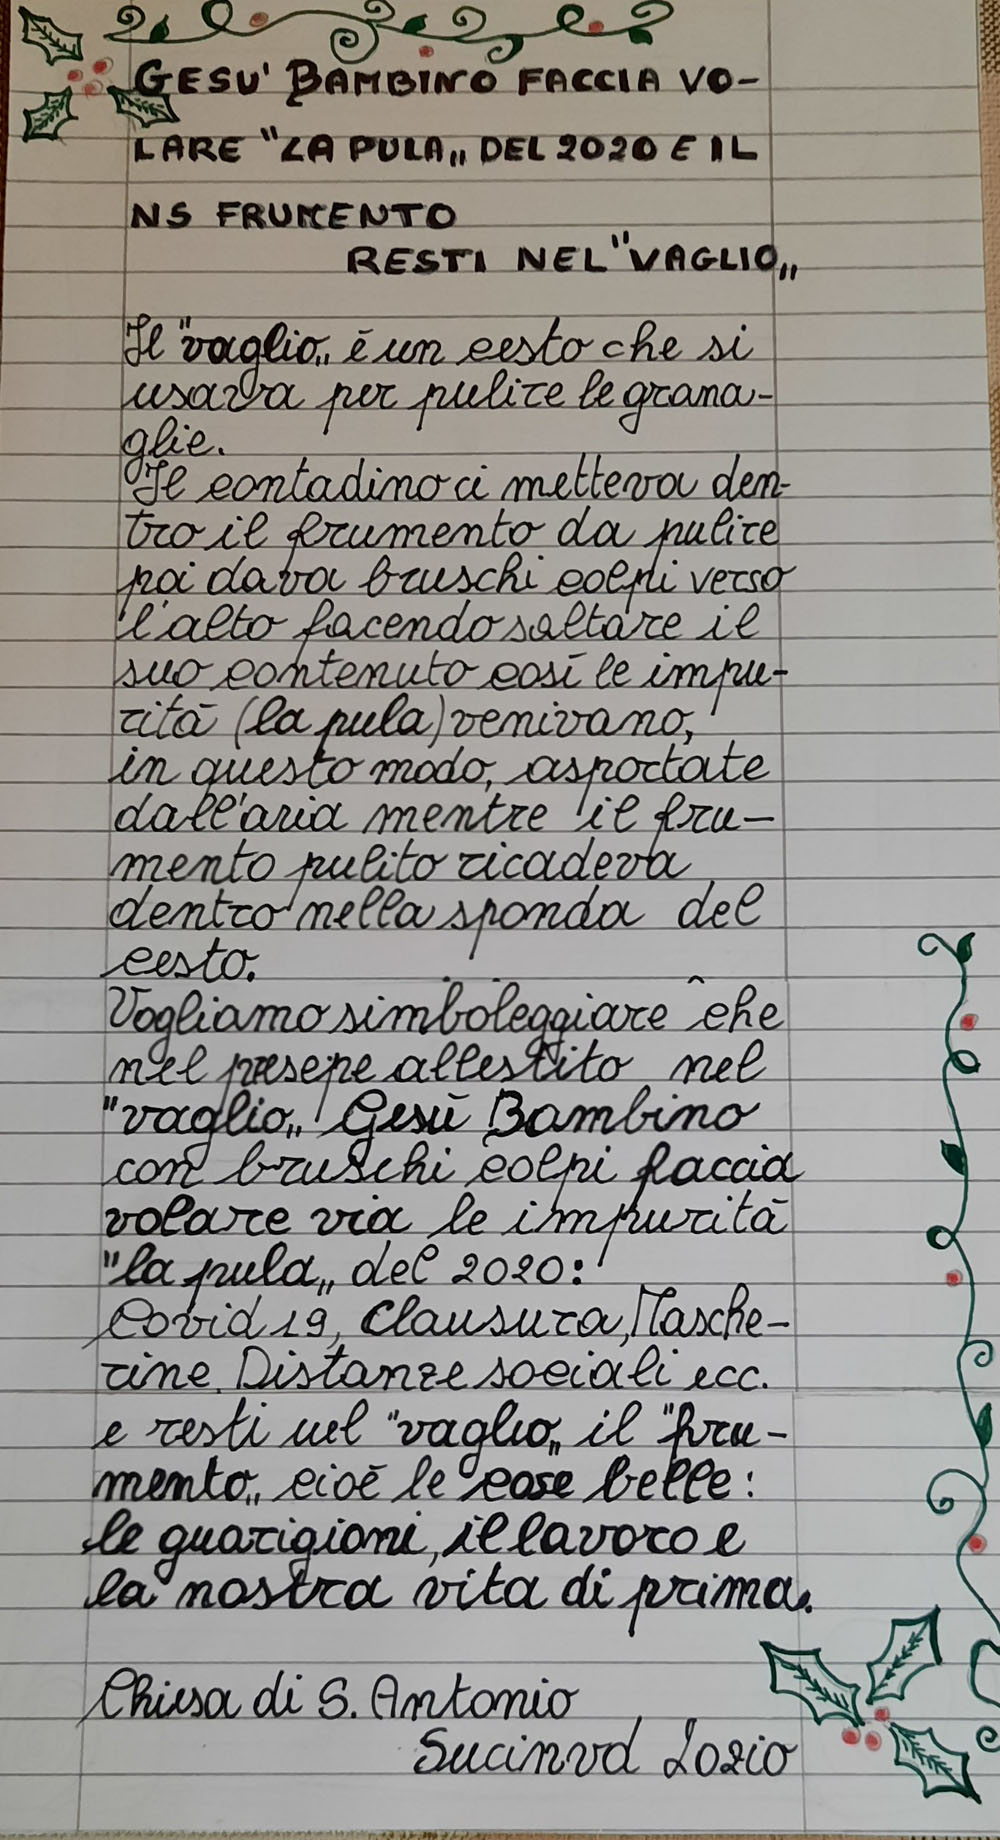 GESU' BAMBINO FACCIA VO-
LARE "LA PULA„ DEL 2020 E IL
NS FRUMENTO
RESTI NEL "VAGLIO„
Il "vaglio„ è un cesto che si
usava per pulire le grana-
glie.
Il contadino ci metteva den-
tro il frumento da pulire
poi dava bruschi colpi verso
l'alto facendo saltare il
suo contenuto così le impu-
rità (la pula) venivano,
in questo modo, asportate
dall'aria mentre il fru-
mento pulito ricadeva
dentro nella sponda del
cesto.
Vogliamo simboleggiare che
nel presepe allestito nel
"vaglio„ Gesù Bambino
con bruschi colpi faccia
volare via le impurità
"la pula„ del 2020:
Covid 19, Clausura, Masche-
rine. Distanze sociali ecc.
e resti nel "vaglio„ il "fru-
mento„ cioè le cose belle:
le guarigioni, il lavoro e
la nostra vita di prima.
Chiesa di S. Antonio
Sucinva Lozio